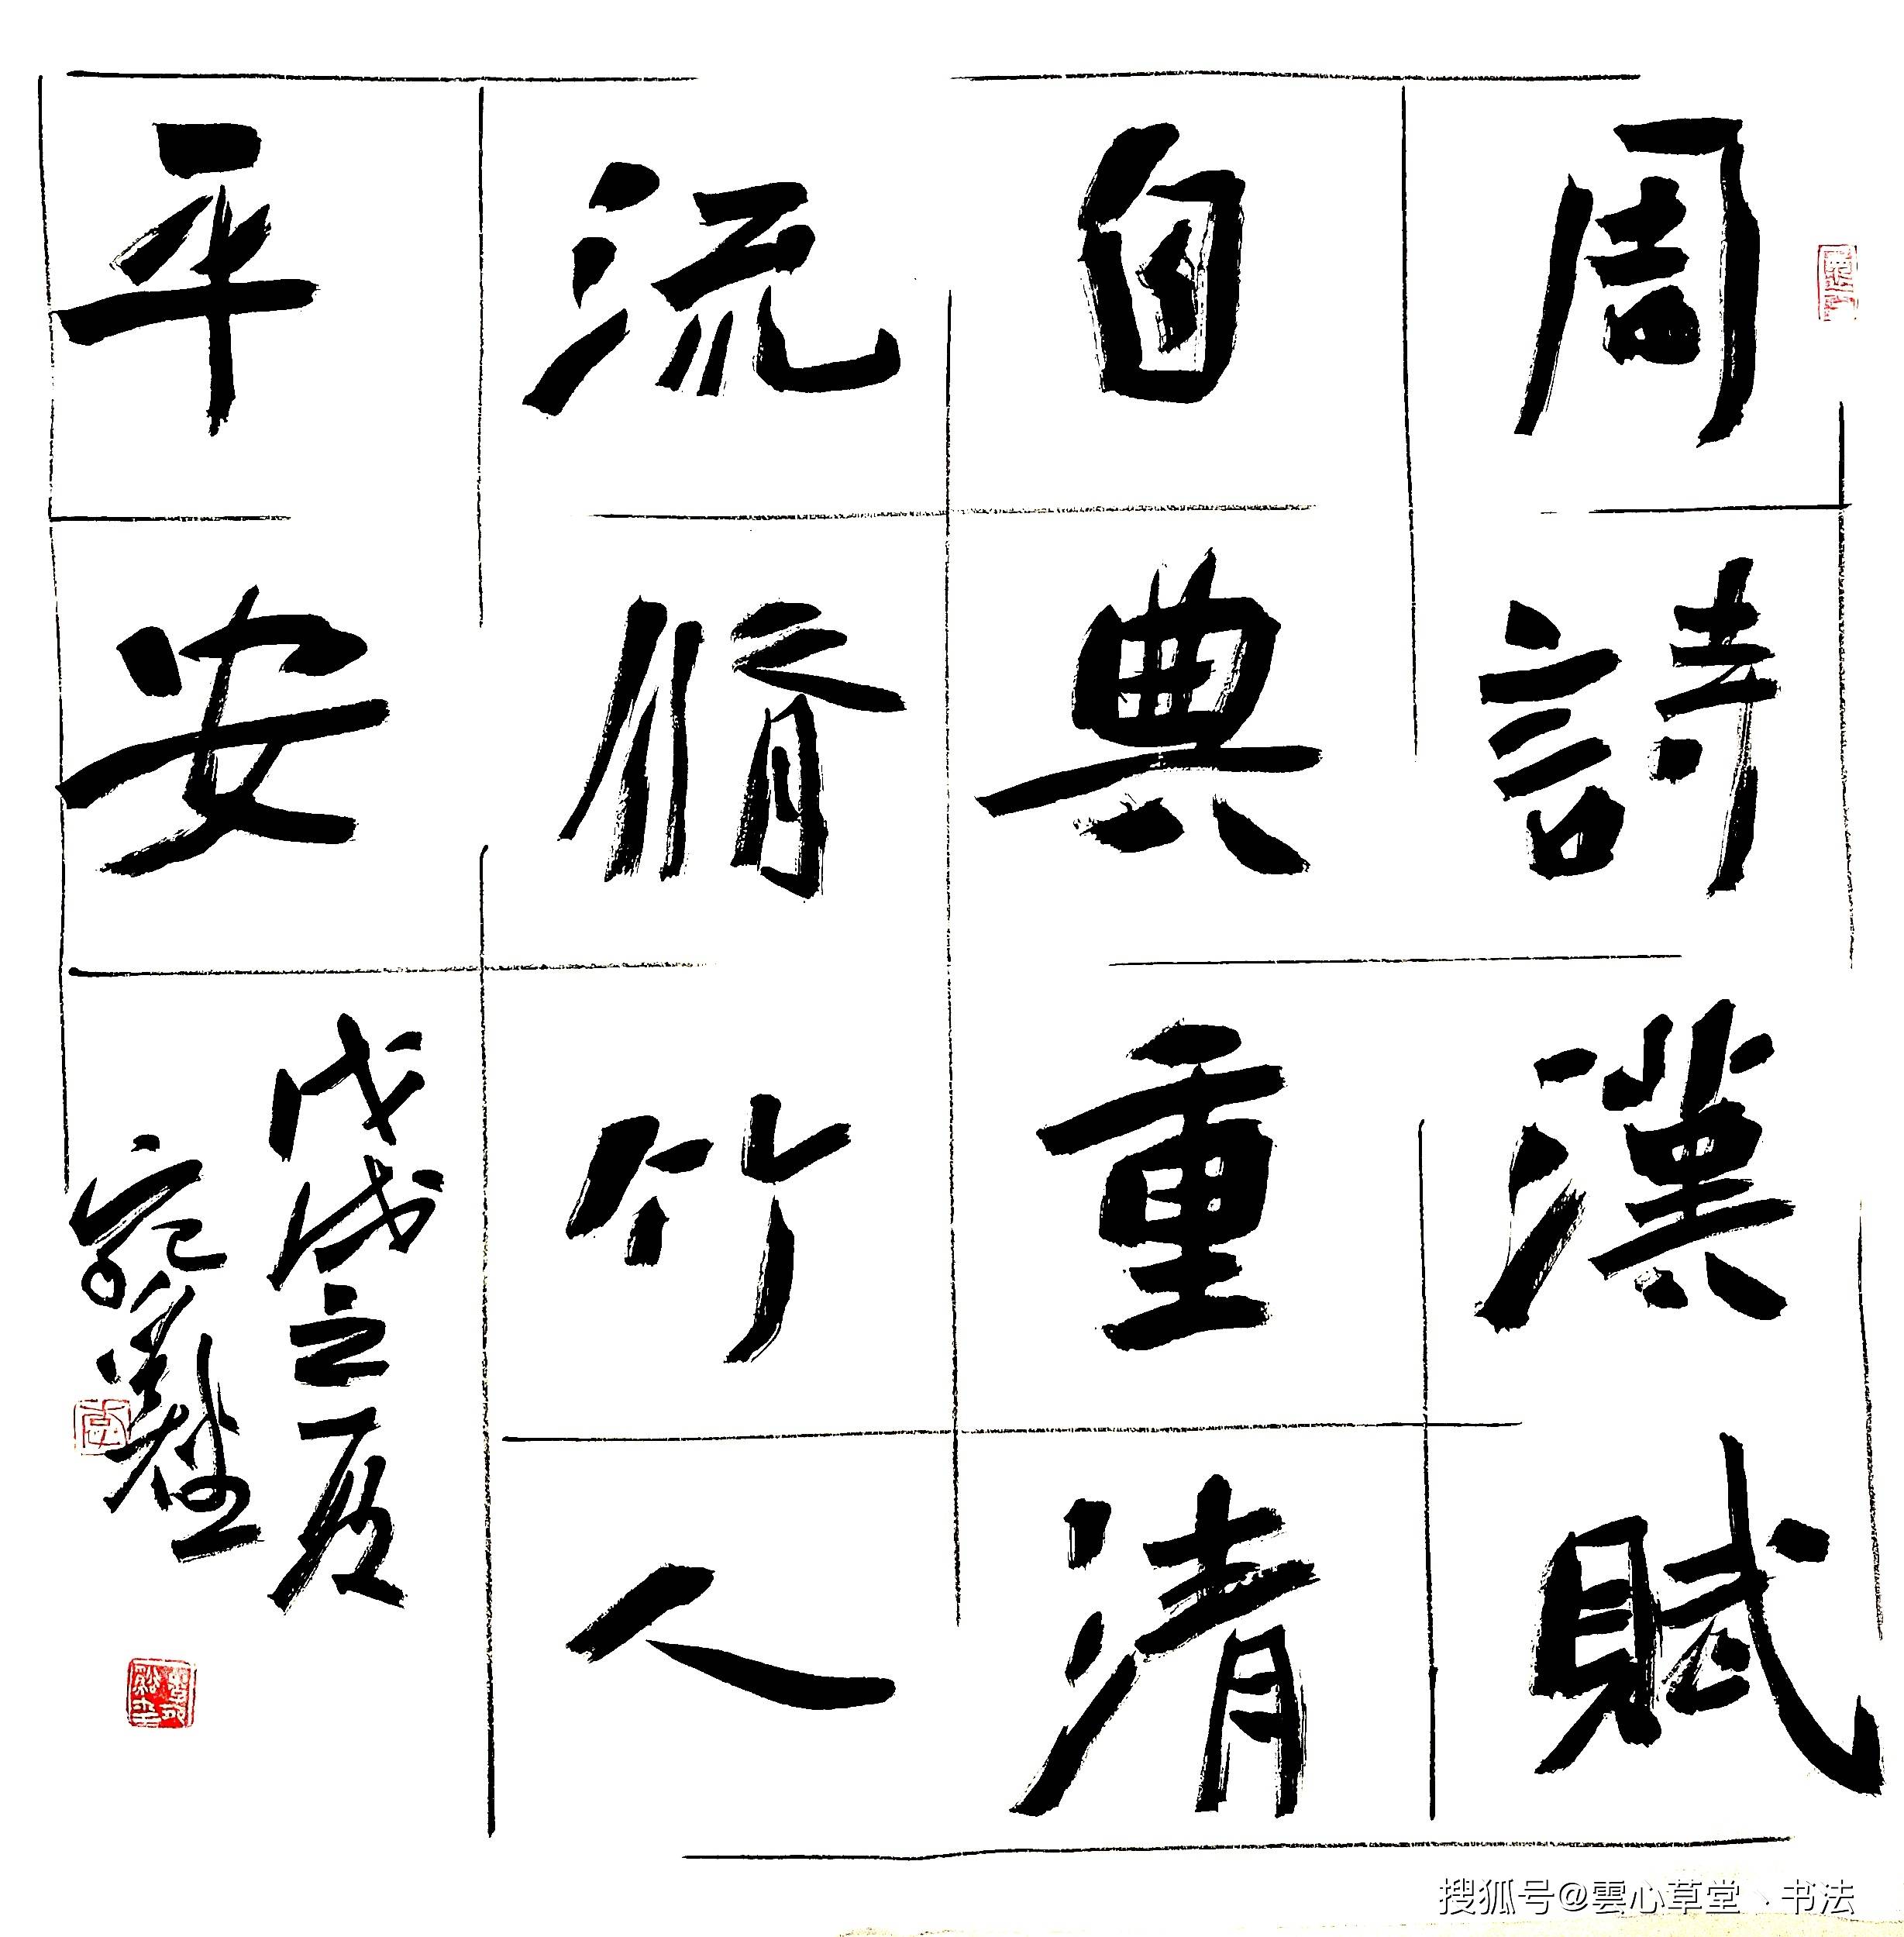 周詩漢賦
自典重清
流脩竹人
平安
戊戌之夏
搜狐号@雲心草堂丶书法